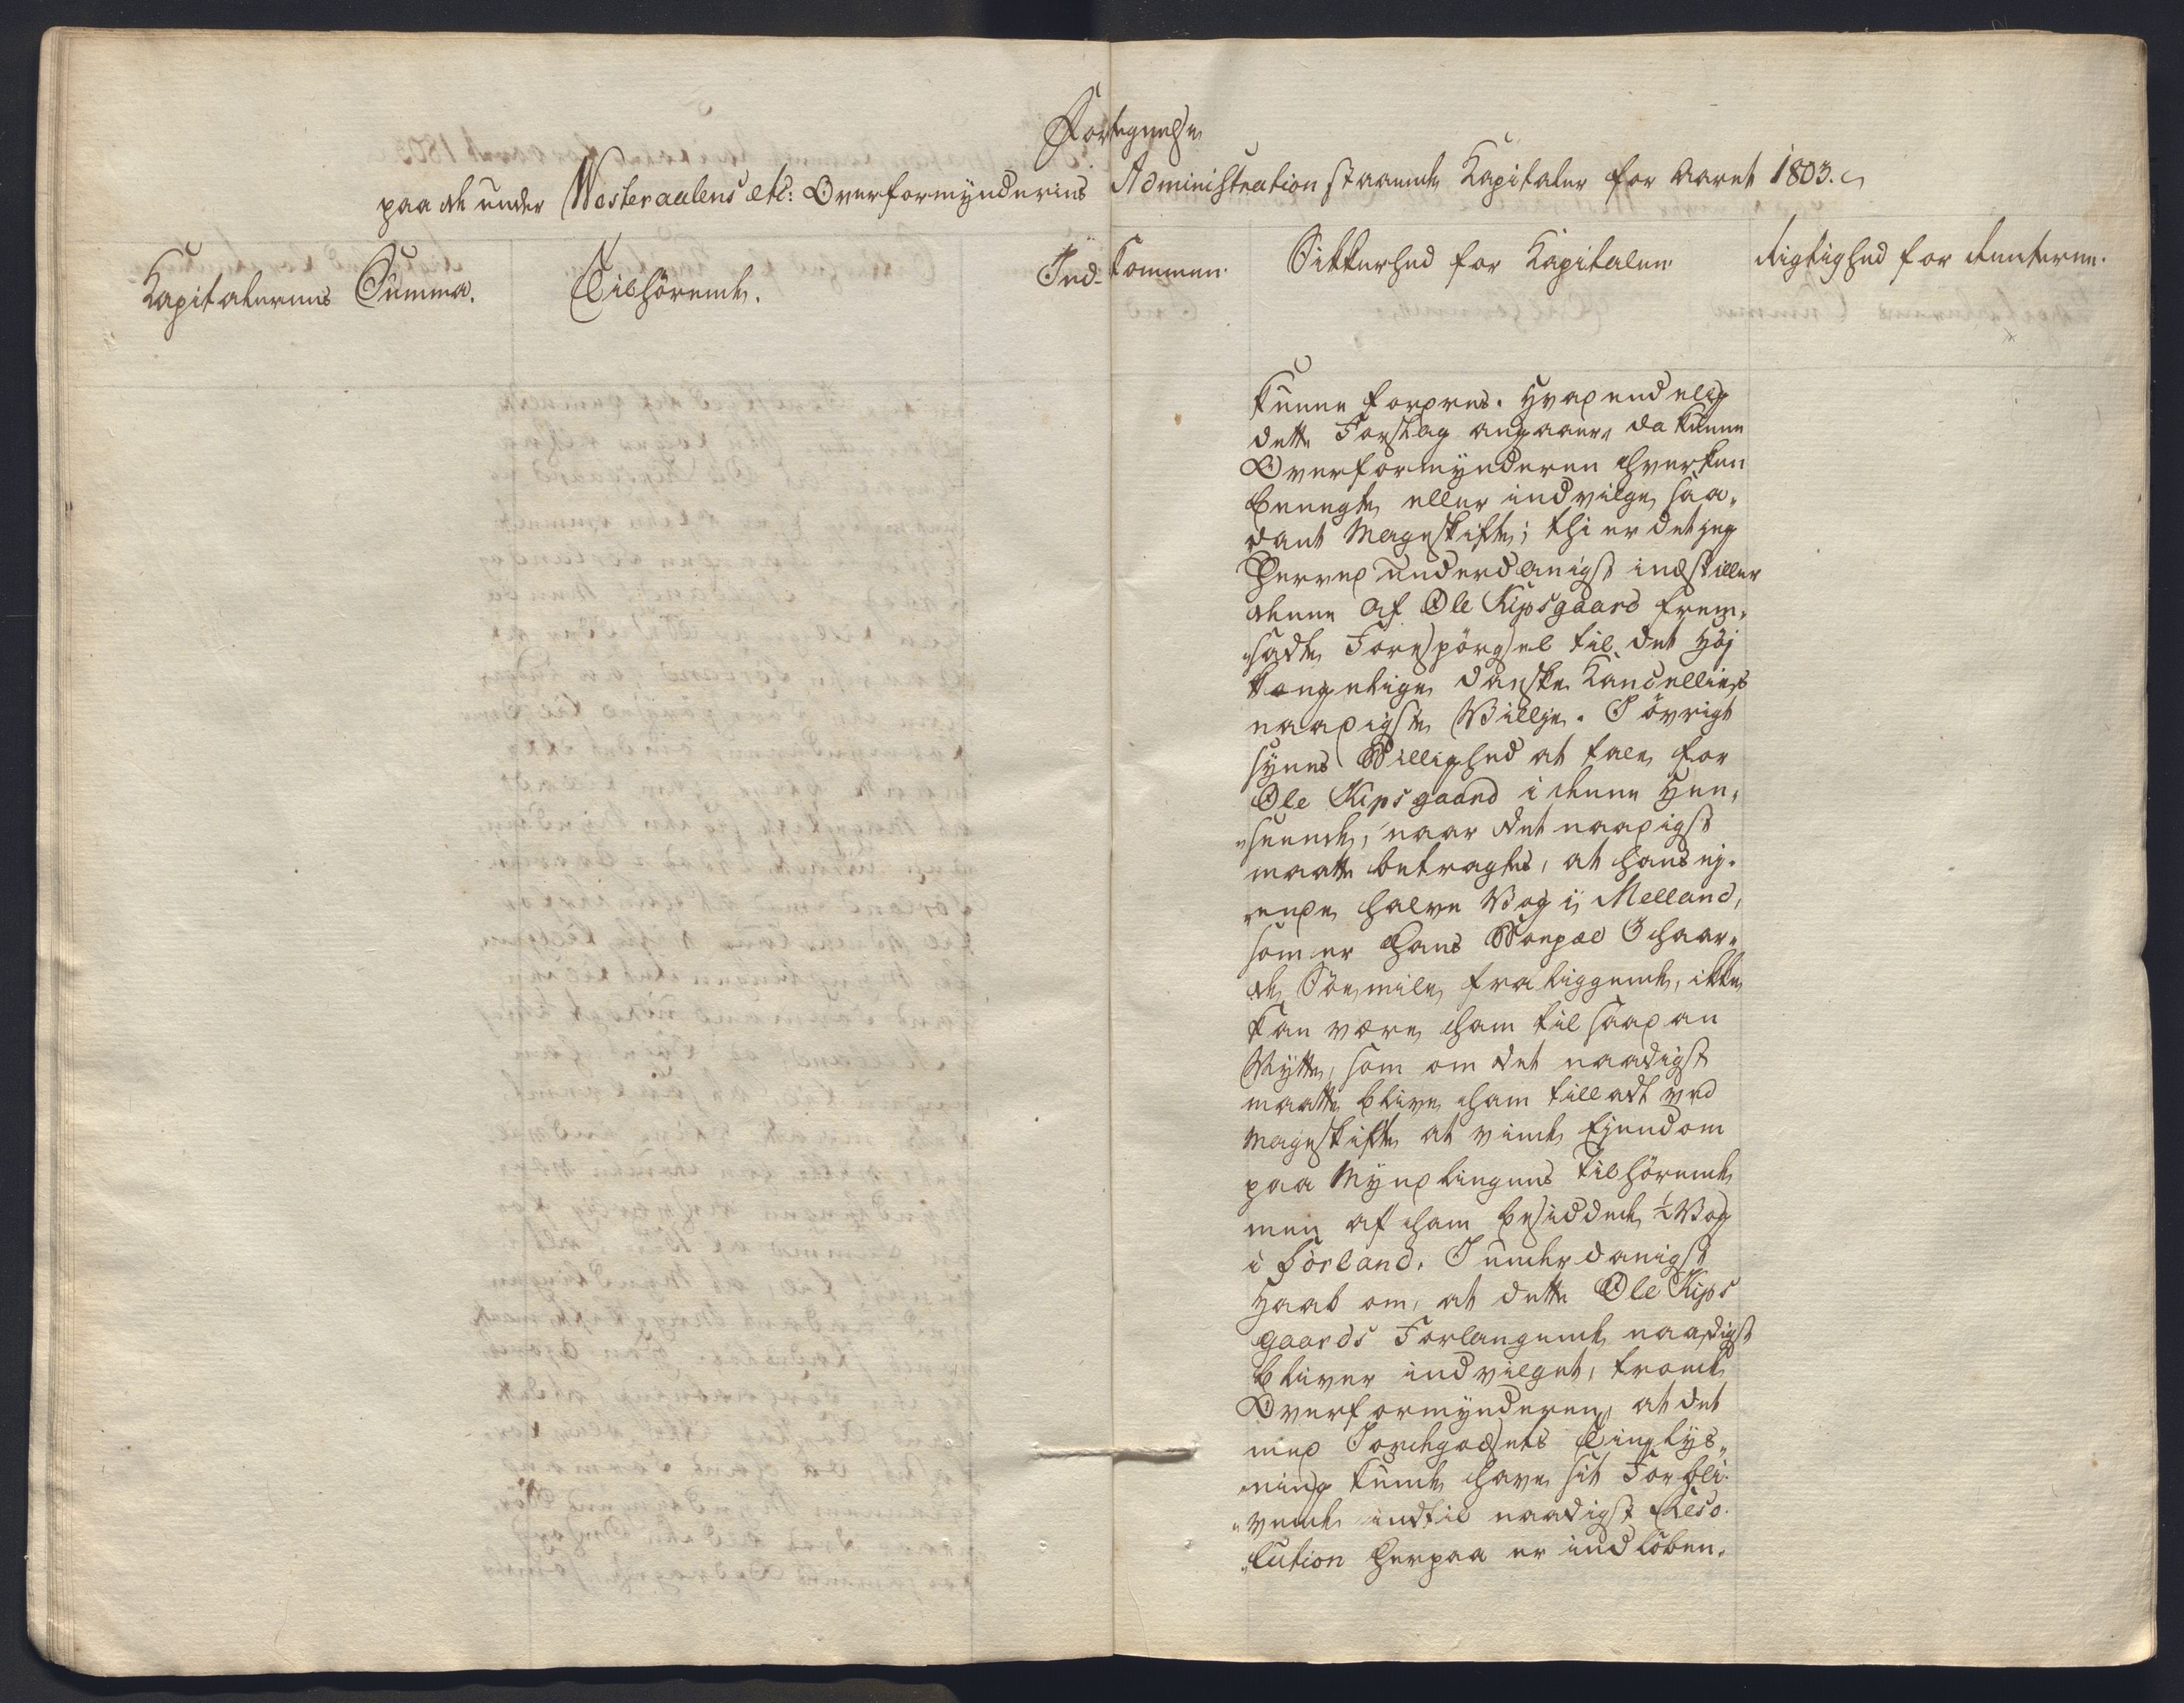 Fortegnelse
paa de under Westeraalens etc: Overformynderies Administration staaende Kapitaler for Aaret 1803.
Kapitalernes Summa.
Tilhörende.
Ind-kommen.
Sikkerhed for Kapitalen
Rigtighed for Renterne.
kunne fordres. Hvad endelig
dette Forslag angaaer, da kunne
Overformynderen hverken
benegte eller indvilge saa-
dant Mageskifte; thi er det jeg
herved underdanigst indstiller
denne af Ole Kipsgaard frem-
satte Forespörgsel til det Höj
kongelige danske Kancellies
naadigste Villje. I övrigt
synes Billighed at tale for
Ole Kipsgaard i denne Hen-
"seende, naar det naadigst
maatte betragtes, at hans ej-
"ende halve Vog i Melland,
som er hans Bopæl 3 haar-
de Söe mile fra liggende, ikke
kan være ham til saadan
Nytte, som om det naadigst
maatte blive ham tilladt ved
Mageskifte at vinde Ejendom
paa Myndlingens tilhörende
men af ham besiddede ½ Vog
i Förland. I underdanigst
Haab om, at dette Ole Kips
gaards Forlangende naadigst
bliver indvilget, troede
Overformynderen, at det
med Jordegodsets Tinglys-
ning kunde have sit Forbli-
"vende indtil naadigst Reso-
"lution herpaa er indlöben.